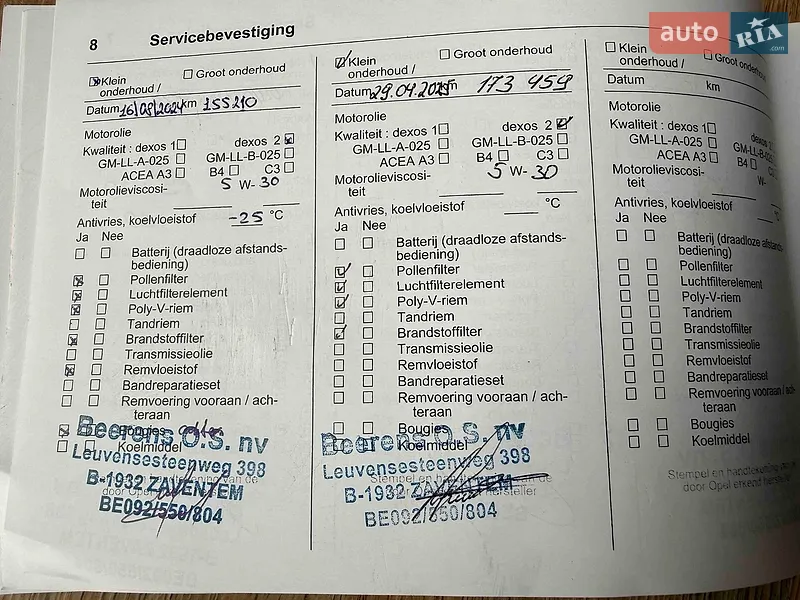 8 Servicebevestiging
auto RIA .com
Klein onderhoud /
Groot onderhoud
Datum 16/08/2024 km 155210
Motorolie
Kwaliteit : dexos 1 dexos 2
GM-LL-A-025 GM-LL-B-025
ACEA A3 B4 C3
Motorolieviscosi-
teit 5 W- 30
Antivries, koelvloeistof -25 °C
Ja Nee
Batterij (draadloze afstands-
bediening)
Pollenfilter
Luchtfilterelement
Poly-V-riem
Tandriem
Brandstoffilter
Transmissieolie
Remvloeistof
Bandreparatieset
Remvoering vooraan / ach-
teraan
Bougies
Koelmiddel
Beerens O.S. nv
Leuvensesteenweg 398
B-1932 ZAVENTEM
BE092/550/804
Klein onderhoud /
Groot onderhoud
Datum 29.04.2025 km 173 459
Motorolie
Kwaliteit : dexos 1 dexos 2
GM-LL-A-025 GM-LL-B-025
ACEA A3 B4 C3
Motorolieviscosi-
teit 5 W- 30
Antivries, koelvloeistof °C
Ja Nee
Batterij (draadloze afstands-
bediening)
Pollenfilter
Luchtfilterelement
Poly-V-riem
Tandriem
Brandstoffilter
Transmissieolie
Remvloeistof
Bandreparatieset
Remvoering vooraan / ach-
teraan
Bougies
Koelmiddel
Stempel en
hersteller
Beerens O.S. nv
Leuvensesteenweg 398
B-1932 ZAVENTEM
BE092/550/804
Klein onderhoud /
Groot onderhoud
Datum km
Motorolie
Kwaliteit : dexos 1 dexos 2
GM-LL-A-025 GM-LL-B-025
ACEA A3 B4
Motorolieviscosi-
teit W-
Antivries, koelvloeistof °C
Ja Nee
Batterij (draadloze afstands-
bediening)
Pollenfilter
Luchtfilterelement
Poly-V-riem
Tandriem
Brandstoffilter
Transmissieolie
Remvloeistof
Bandreparatieset
Remvoering vooraan / ach-
teraan
Bougies
Koelmiddel
Stempel en handtekening van de
door Opel erkend hersteller